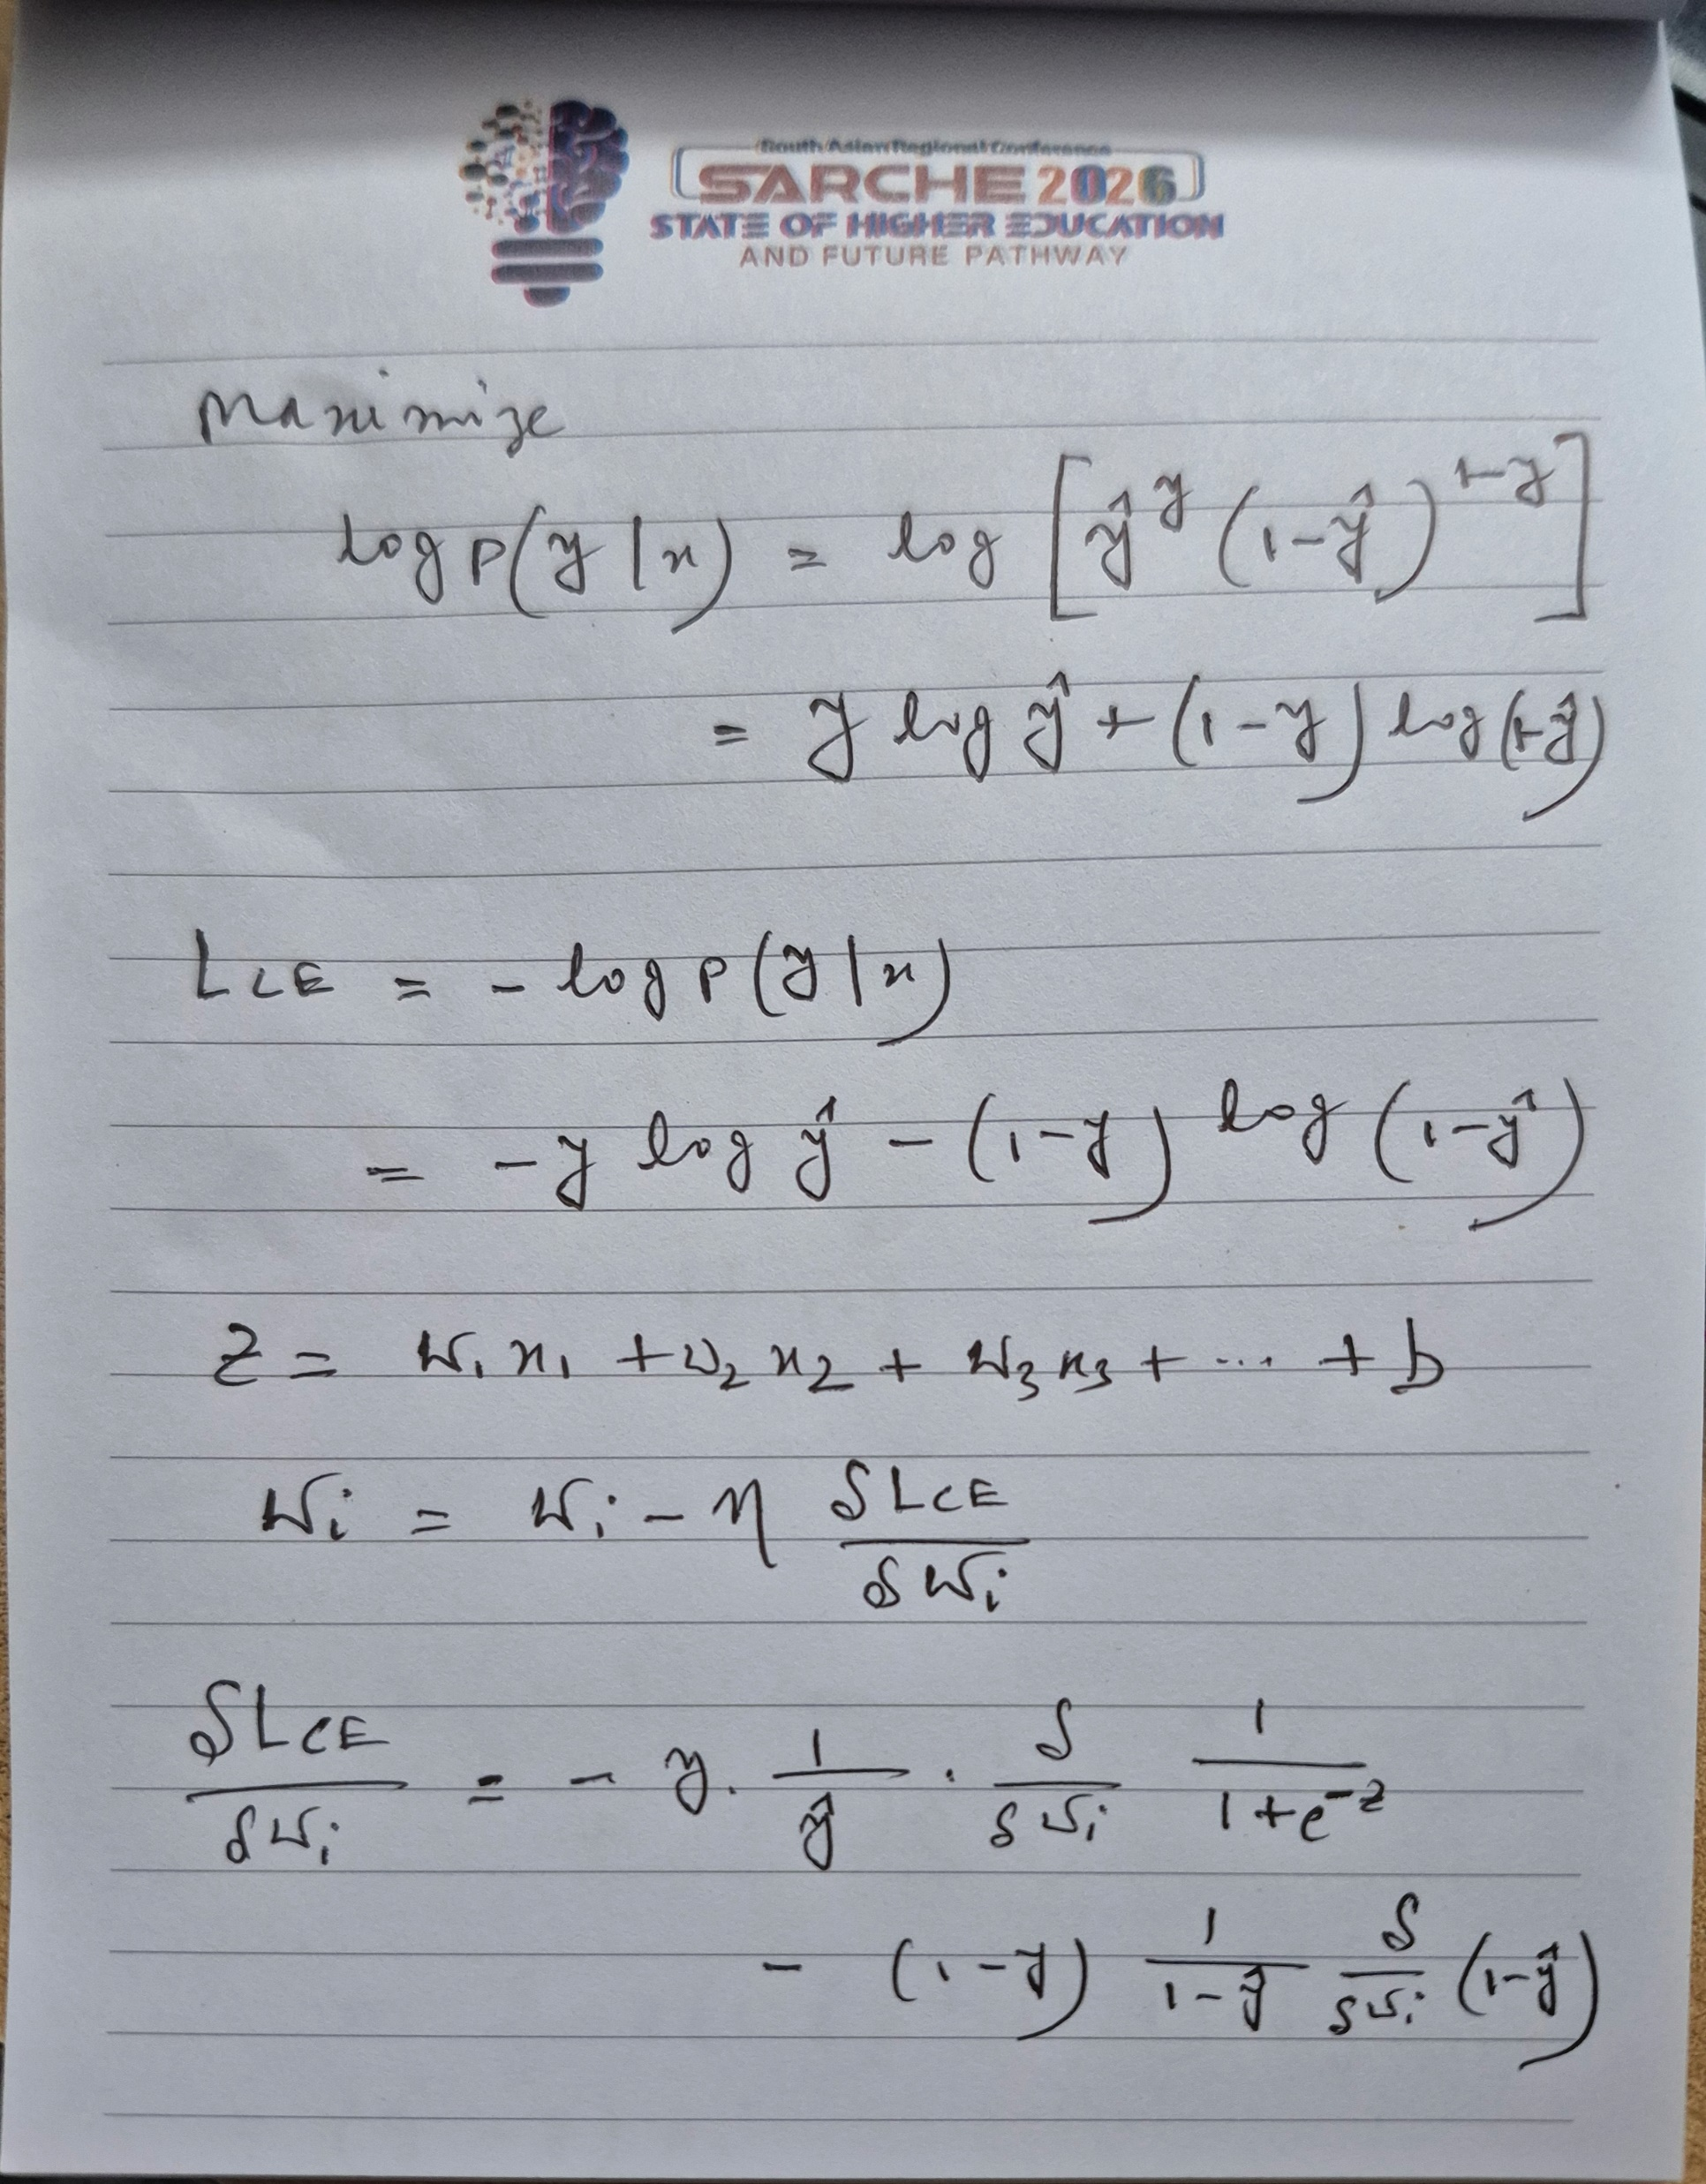 South Asian Regional Conference
SARCHE 2026
STATE OF HIGHER EDUCATION
AND FUTURE PATHWAY
Maximize
log P(y|x) = log [ŷ^y (1-ŷ)^1-y]
= y log ŷ + (1-y) log(1-ŷ)
LCE = - log P(y|x)
= -y log ŷ - (1-y) log (1-ŷ)
z = w₁x₁ + w₂x₂ + w₃x₃ + ... + b
wᵢ = wᵢ - η δLCE/δwᵢ
δLCE/δwᵢ = - y. 1/ŷ . δ/δwᵢ 1/(1+e^-z)
- (1-y) 1/(1-ŷ) δ/δwᵢ (1-ŷ)